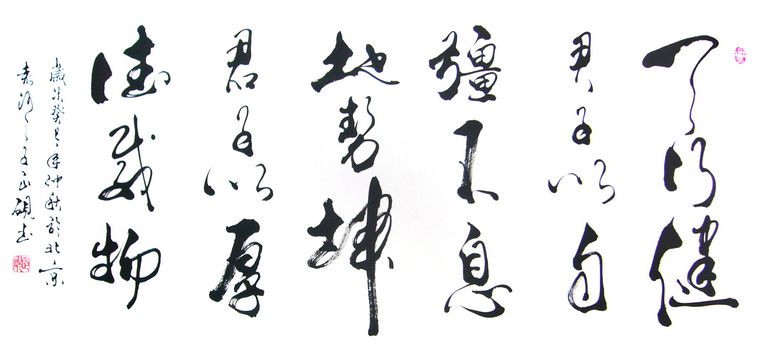 天行健
君子以自
彊不息
地勢坤
君子以厚
德載物
歲癸巳年仲秋於北京